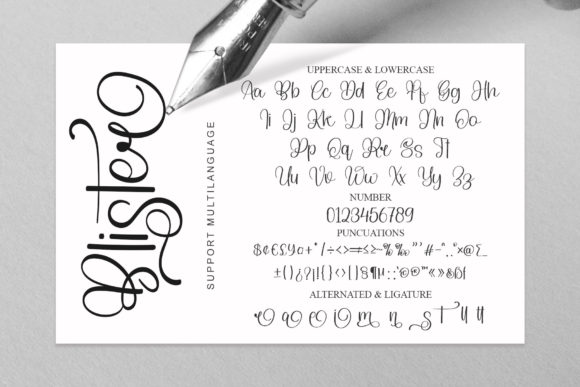 Blister
SUPPORT MULTILANGUAGE
UPPERCASE & LOWERCASE
Aa Bb Cc Dd Ee Ff Gg Hh
Ii Jj Kk Ll Mm Nn Oo
Pp Qq Rr Ss Tt
Uu Vv Ww Xx Yy Zz
NUMBER
0123456789
PUNCUATIONS
ALTERNATED & LIGATURE